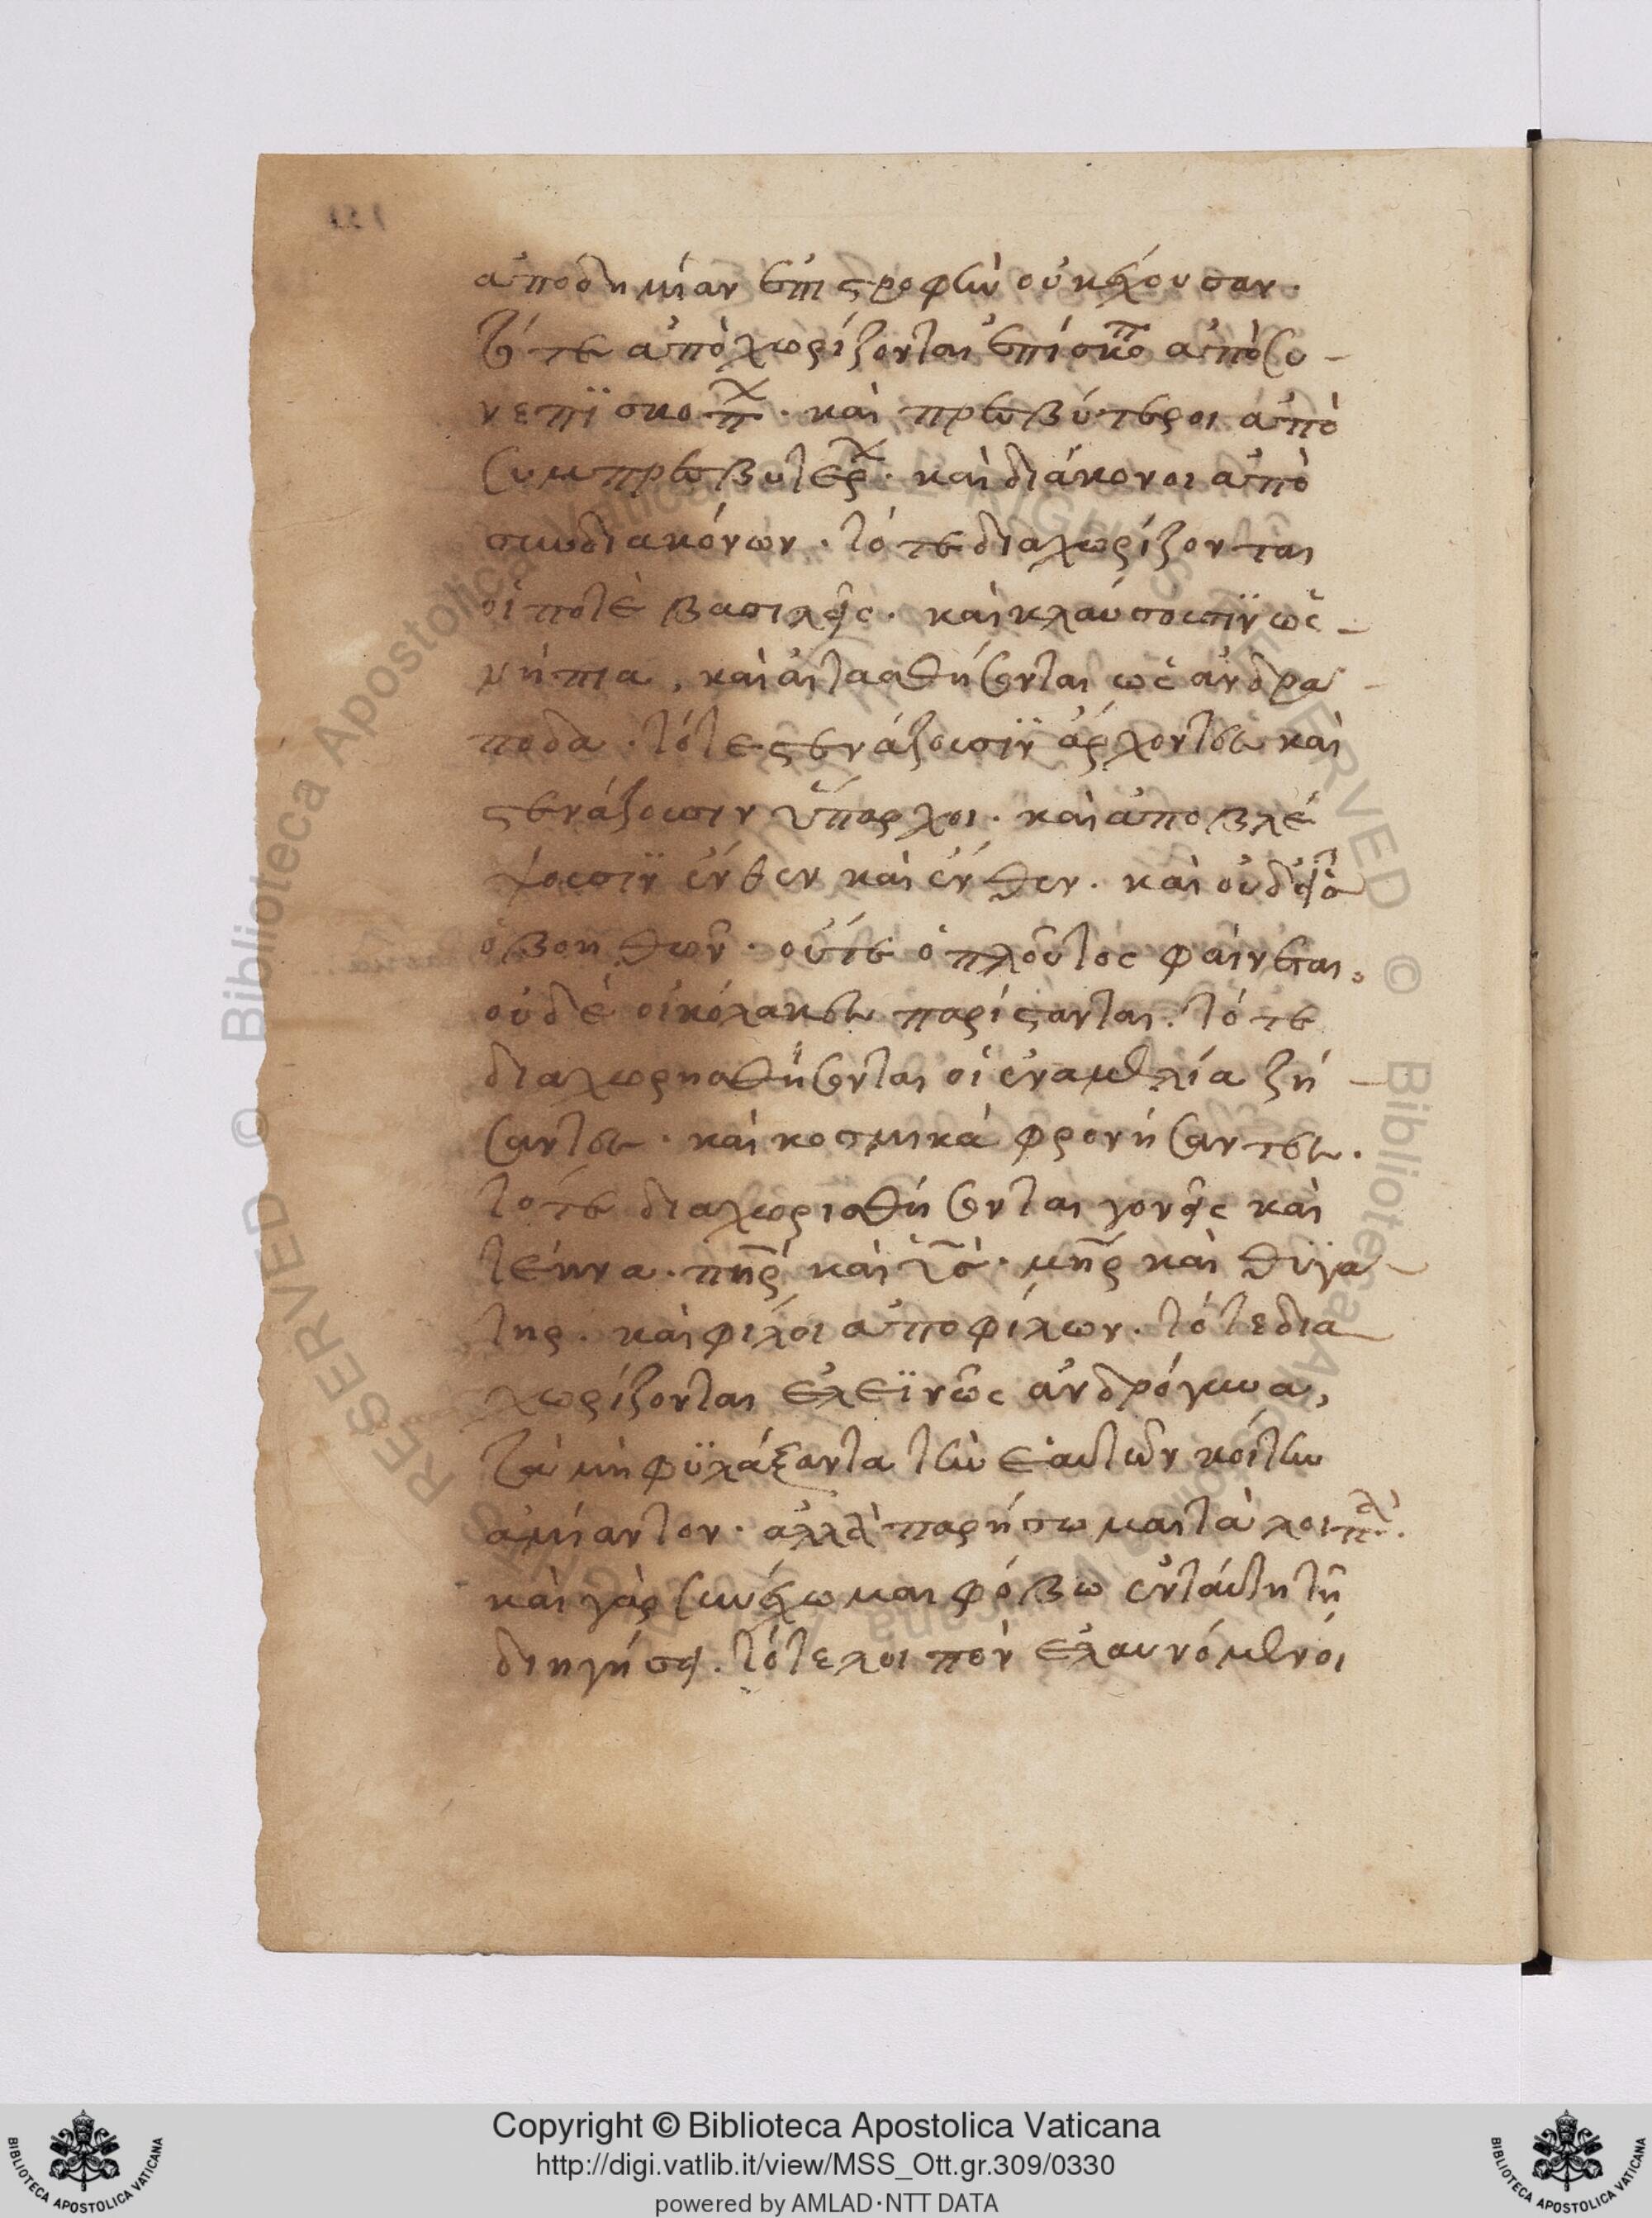 ἀποδημίαν ἐπιστροφὴν οὐκ ἔχουσαν.
τότε ἀποχωρίζονται ἐπίσκοπ ἀπὸ συ-
νεπϊσκοπ. καὶ πρεσβύτεροι ἀπὸ
συμπρεσβυτερ. καὶ διάκονοι ἀπὸ
συνδιακόνων. τότε διαχωρίζονται
οἱ ποτὲ βασιλεῖς. καὶ κλαύσουσϊν ὡς
νήπια, καὶ ἀπασθήσονται ὡς ἀνδρα-
ποδα. τότε στενάξουσϊν ἄρχοντες καὶ
στενάξουσιν ὕπαρχοι. καὶ ἀποβλέ
ψουσϊν ἔνθεν καὶ ἔνθεν. καὶ οὐδεὶς
ὁ βοηθῶν. οὔτε ὁ πλοῦτος φαίνεται.
οὐδὲ οἱ κόλακες παρίστανται. τότε
διαχωρησθήσονται οἱ ἐν ἀμελία ζή-
σαντες. καὶ κοσμικὰ φρονήσαντες.
τότε διαχωρισθήσονται γονεῖς καὶ
τέκνα. πηρ καὶ υσ. μηρ καὶ θϋγα-
τηρ. καὶ φίλοι ἀπο φίλων. τότε δια
χωρίζονται ἐλεϊνῶς ἀνδρόγυνα,
τὰ μὴ φϋλάξαντα τὴν ἑαυτῶν κοίτην
ἀμίαντον. ἀλλὰ παρήσωμαι τὰ λοιπὰ.
καὶ γὰρ συνέχωμαι φόβω ἐν ταύτη τῆ
διηγήσει. τότε λοιπὸν ἐλαυνόμενοι
Copyright © Biblioteca Apostolica Vaticana
http://digi.vatlib.it/view/MSS_Ott.gr.309/0330
powered by AMLAD·NTT DATA